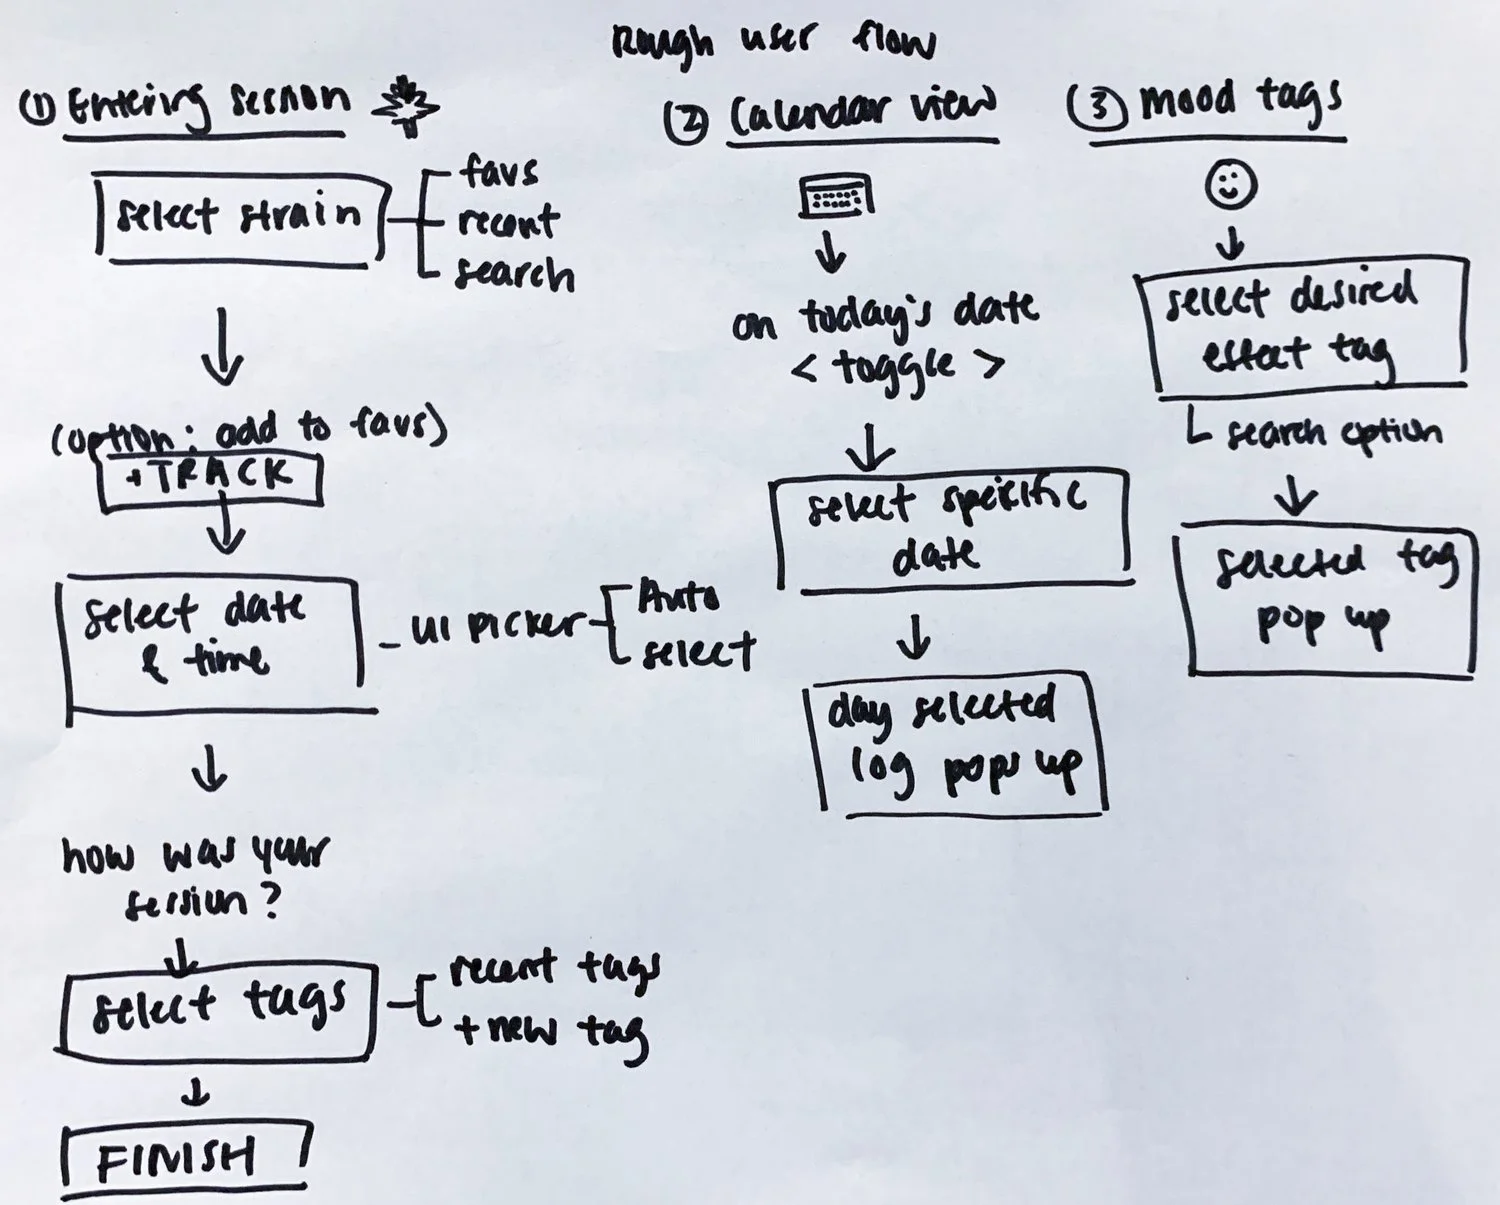 Rough user flow
① Entering session
select strain
favs
recent
search
(option: add to favs)
+TRACK
select date
& time
UI PICKER
Auto
select
how was your
session?
select tags
recent tags
+ new tag
FINISH
② Calendar view
on today's date
< toggle >
select specific
date
day selected
log pops up
③ mood tags
select desired
effect tag
search option
selected tag
pop up